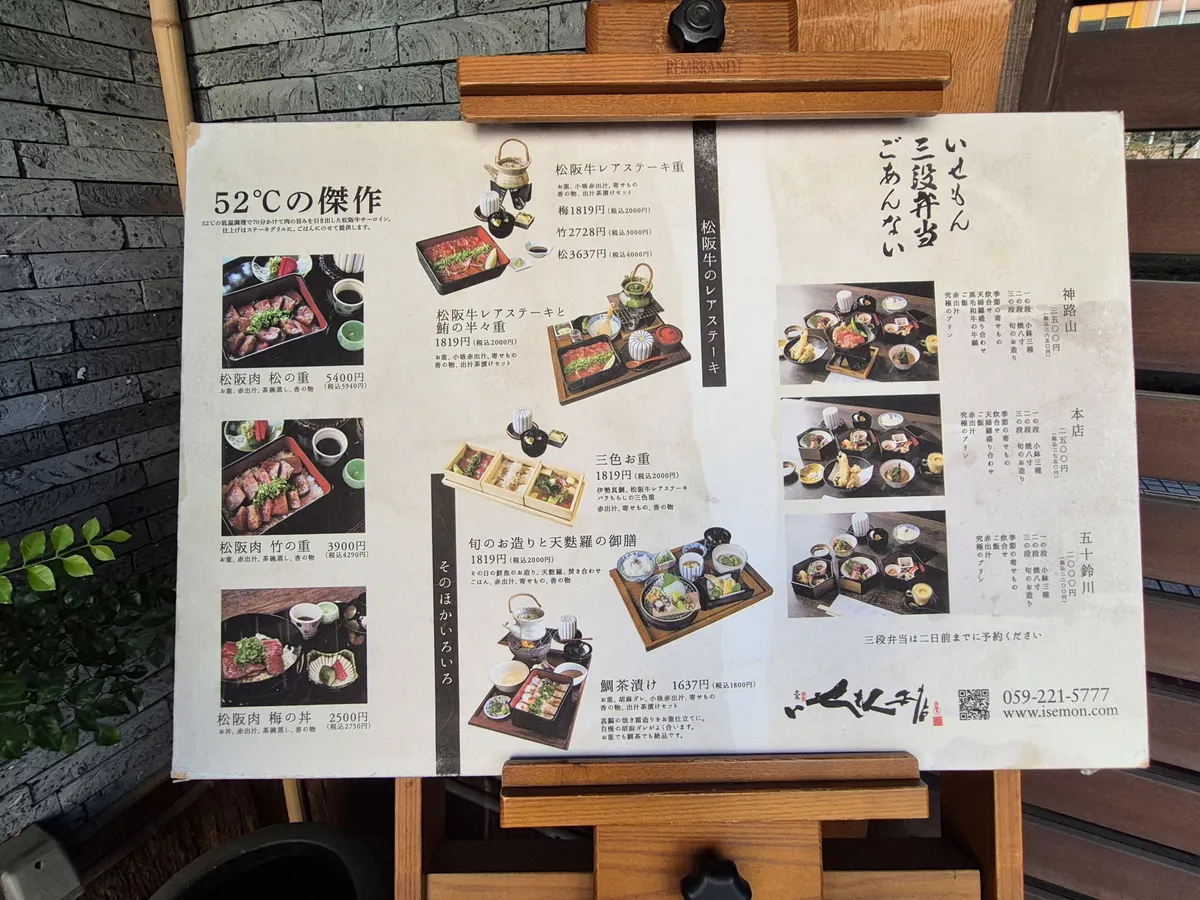 REMBRANDT
52℃の傑作
52℃の低温調理で70分かけて肉の旨みを引き出した松阪牛サーロイン。
仕上げはステーキグリルに、ごはんにのせて提供します。
松阪肉 松の重 5400円
お重、赤出汁、茶碗蒸し、香の物 (税込5940円)
松阪肉 竹の重 3900円
お重、赤出汁、茶碗蒸し、香の物 (税込4290円)
松阪肉 梅の丼 2500円
お丼、赤出汁、茶碗蒸し、香の物 (税込2750円)
松阪牛のレアステーキ
松阪牛レアステーキ重
お重、小吸赤出汁、寄せもの
香の物、出汁茶漬けセット
梅1819円(税込2000円)
竹2728円(税込3000円)
松3637円(税込4000円)
松阪牛レアステーキと
鮪の半々重
1819円(税込2000円)
お重、小吸赤出汁、寄せもの
香の物、出汁茶漬けセット
そのほかいろいろ
三色お重
1819円(税込2000円)
伊勢真鯛、松阪牛レアステーキ
バラちらしの三色重
赤出汁、寄せもの、香の物
旬のお造りと天麩羅の御膳
1819円(税込2000円)
その日の鮮魚のお造り、天麩羅、焚き合わせ
ごはん、赤出汁、寄せもの、香の物
鯛茶漬け 1637円(税込1800円)
お重、胡麻ダレ、小吸赤出汁、寄せもの
香の物、出汁茶漬けセット
真鯛の焼き霜造りをお重仕立てに。
自慢の胡麻ダレがよく合います。
お重でも鯛茶でも絶品です。
いせもん
三段弁当
ごあんない
神路山
三五〇〇円
(税込三八五〇円)
一の段 小鉢三種
二の段 焼八寸
三の段 旬のお造り
季節の寄せもの
炊合せ
天婦羅盛り合わせ
黒毛和牛の牛鍋
ご飯
赤出汁
究極のプリン
本店
二五〇〇円
(税込二七五〇円)
一の段 小鉢三種
二の段 焼八寸
三の段 旬のお造り
季節の寄せもの
炊合せ
天婦羅盛り合わせ
ご飯
赤出汁
究極のプリン
五十鈴川
二〇〇〇円
(税込二二〇〇円)
一の段 小鉢三種
二の段 焼八寸
三の段 旬のお造り
季節の寄せもの
炊合せ
ご飯
赤出汁
究極のプリン
三段弁当は二日前までに予約ください
059-221-5777
www.isemon.com